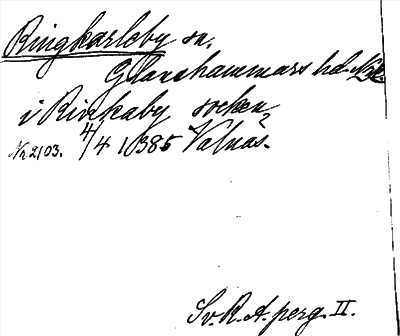 Ringkarleby sn.
Glanshammars hd. Nke.
i Rinkaby socken,
Nr 2103. 4/4 1385 Valnäs.
Sv. R. A. perg. II.